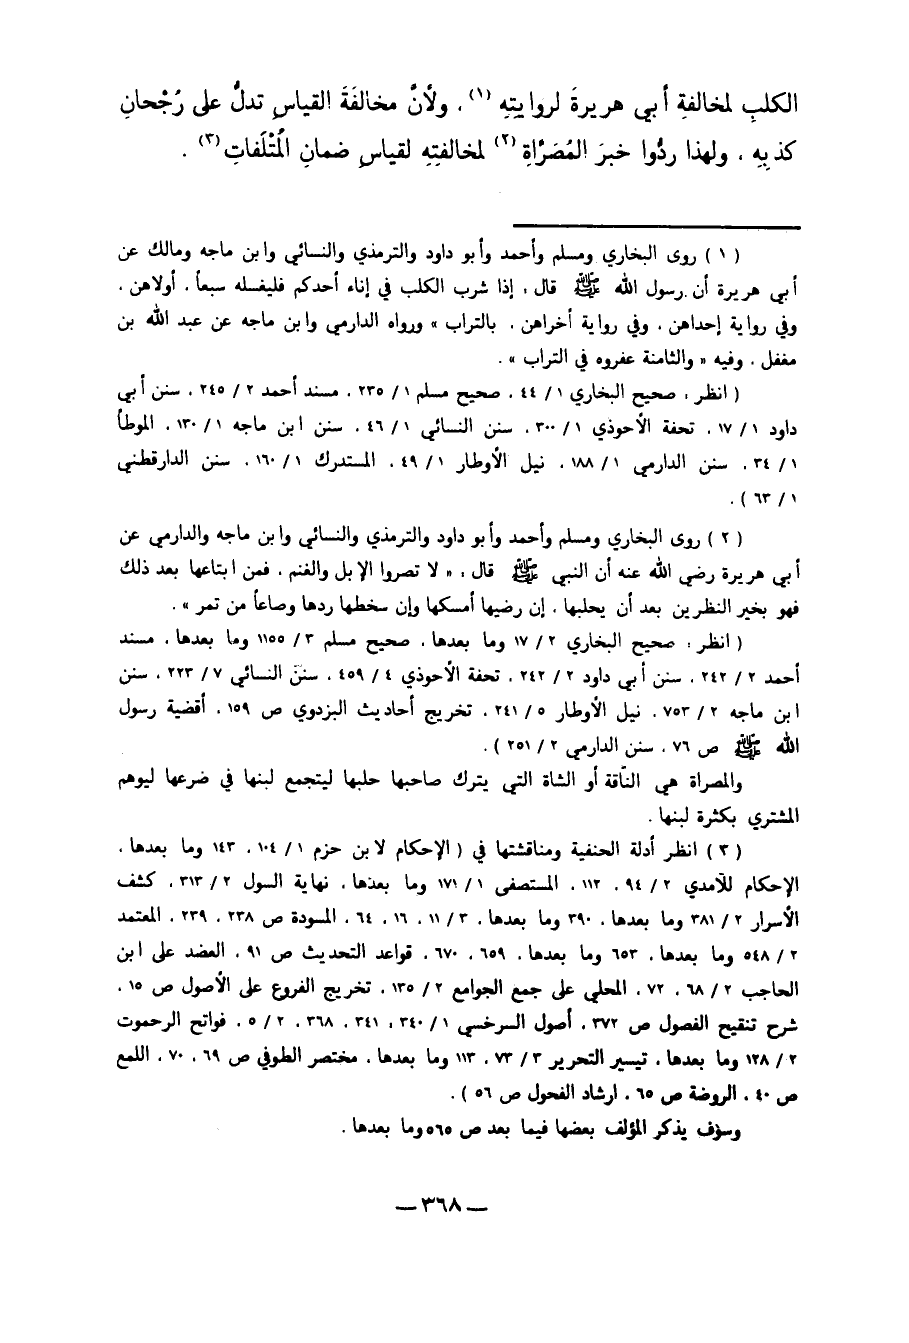 الكلبِ لمخالفةِ أبي هريرةَ لروايتِهِ (١) ، ولأنَّ مخالفَةَ القياسِ تدلُّ على رُجْحانِ
كذبِهِ ، ولهذا ردُّوا خبرَ المُصَرَّاةِ (٢) لمخالفتِه لقياسِ ضمانِ المُتْلَفاتِ (٣) .
( ١ ) روى البخاري ومسلم وأحمد وأبو داود والترمذي والنسائي وابن ماجه ومالك عن
أبي هريرة أن رسول الله ﷺ قال : إذا شرب الكلب في إناء أحدكم فليغسله سبعاً ، أولاهن ،
وفي رواية إحداهن ، وفي رواية أخراهن ، بالتراب » ورواه الدارمي وابن ماجه عن عبد الله بن
مغفل ، وفيه « والثامنة عفروه في التراب » .
( انظر : صحيح البخاري ١ / ٤٤ ، صحيح مسلم ١ / ٢٣٥ ، مسند أحمد ٢ / ٢٤٥ ، سنن أبي
داود ١ / ١٧ ، تحفة الأحوذي ١ / ٣٠٠ ، سنن النسائي ١ / ٤٦ ، سنن ابن ماجه ١ / ١٣٠ ، الموطأ
١ / ٣٤ ، سنن الدارمي ١ / ١٨٨ ، نيل الأوطار ١ / ٤٩ ، المستدرك ١ / ١٦٠ ، سنن الدارقطني
١ / ٦٣ ) .
( ٢ ) روى البخاري ومسلم وأحمد وأبو داود والترمذي والنسائي وابن ماجه والدارمي عن
أبي هريرة رضي الله عنه أن النبي ﷺ قال : « لا تصروا الإبل والغنم ، فمن ابتاعها بعد ذلك
فهو بخير النظرين بعد أن يحلبها ، إن رضيها أمسكها وإن سخطها ردها وصاعاً من تمر » .
( انظر : صحيح البخاري ٢ / ١٧ وما بعدها ، صحيح مسلم ٣ / ١١٥٥ وما بعدها ، مسند
أحمد ٢ / ٢٤٢ ، سنن أبي داود ٢ / ٢٤٢ ، تحفة الأحوذي ٤ / ٤٥٩ ، سنن النسائي ٧ / ٢٢٣ ، سنن
ابن ماجه ٢ / ٧٥٣ ، نيل الأوطار ٥ / ٢٤١ ، تخريج أحاديث البزدوي ص ١٥٩ ، أقضية رسول
الله ﷺ ص ٧٦ ، سنن الدارمي ٢ / ٢٥١ ) .
والمصراة هي النّاقة أو الشاة التي يترك صاحبها حلبها ليتجمع لبنها في ضرعها ليوهم
المشتري بكثرة لبنها .
( ٣ ) انظر أدلة الحنفية ومناقشتها في ( الإحكام لابن حزم ١ / ١٠٤ ، ١٤٣ وما بعدها ،
الإحكام للآمدي ٢ / ٩٤ ، ١١٢ ، المستصفى ١ / ١٧١ وما بعدها ، نهاية السول ٢ / ٣١٣ ، كشف
الأسرار ٢ / ٣٨١ وما بعدها ، ٣٩٠ وما بعدها ، ٣ / ١١ ، ١٦ ، ٦٤ ، المسودة ص ٢٣٨ ، ٢٣٩ ، المعتمد
٢ / ٥٤٨ وما بعدها ، ٦٥٣ وما بعدها ، ٦٥٩ ، ٦٧٠ ، قواعد التحديث ص ٩١ ، العضد على ابن
الحاجب ٢ / ٦٨ ، ٧٢ ، المحلي على جمع الجوامع ٢ / ١٣٥ ، تخريج الفروع على الأصول ص ١٥ ،
شرح تنقيح الفصول ص ٣٧٢ ، أصول السرخسي ١ / ٣٤٠ ، ٣٤١ ، ٣٦٨ ، ٢ / ٥ ، فواتح الرحموت
٢ / ١٢٨ وما بعدها ، تيسير التحرير ٣ / ٧٣ ، ١١٣ وما بعدها ، مختصر الطوفي ص ٦٩ ، ٧٠ ، اللمع
ص ٤٠ ، الروضة ص ٦٥ ، ارشاد الفحول ص ٥٦ ) .
وسوف يذكر المؤلف بعضها فيما بعد ص ٥٦٥ وما بعدها .
— ٣٦٨ —